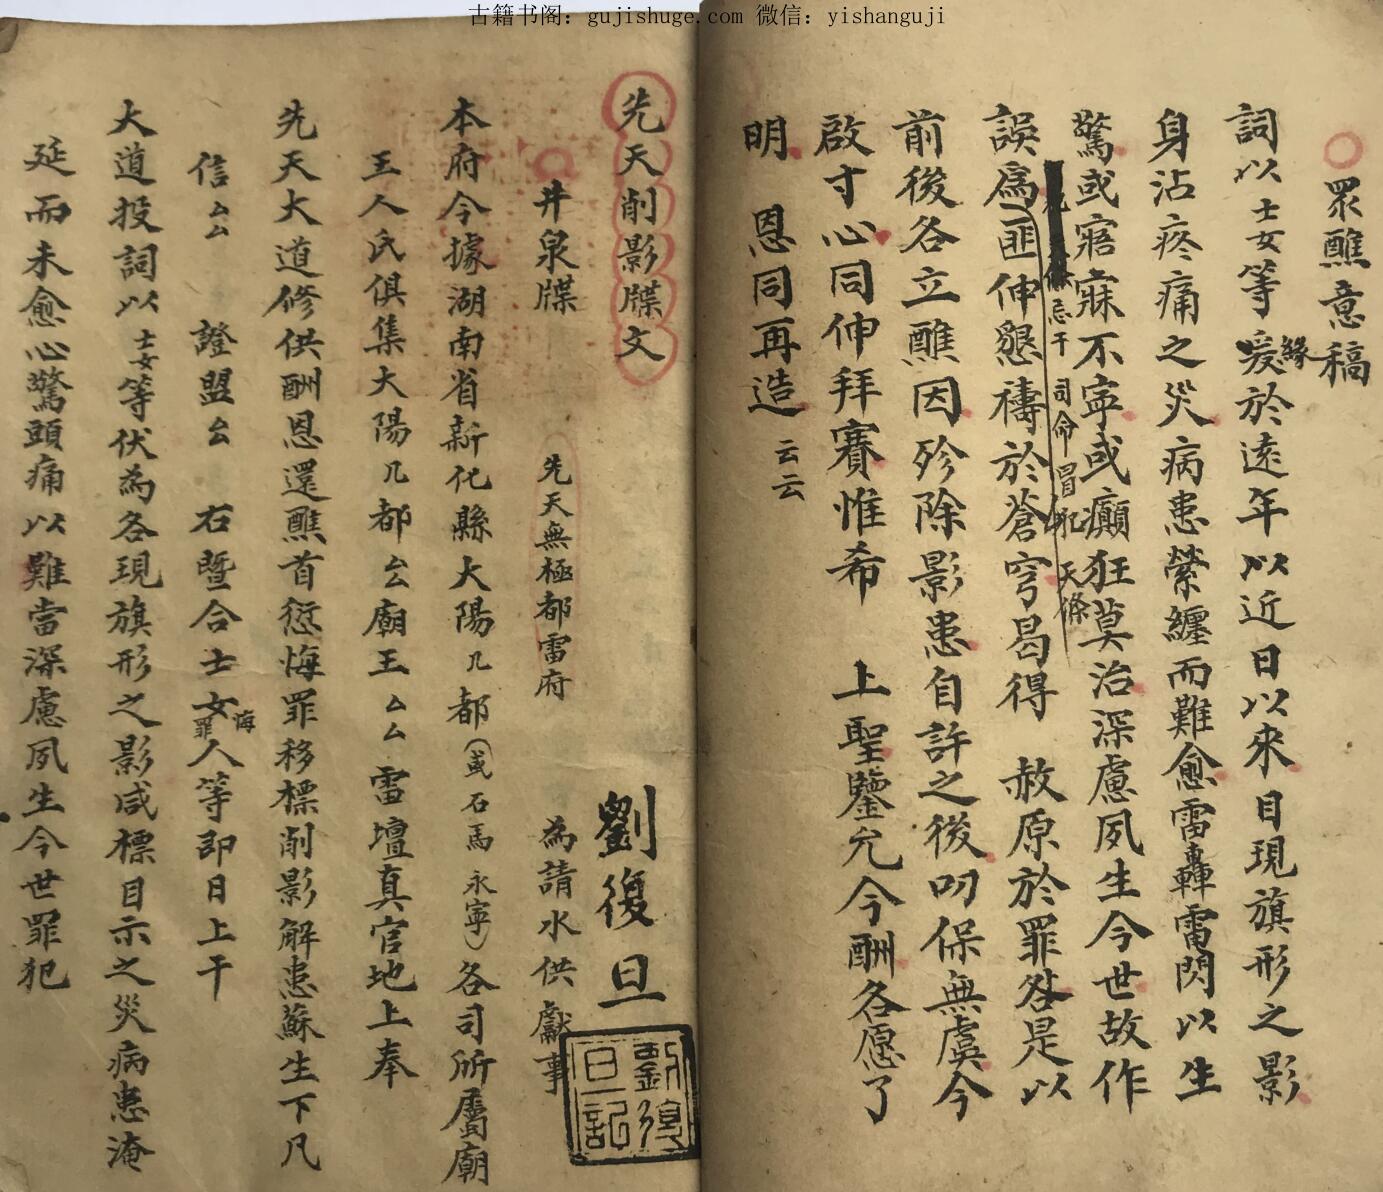 古籍书阁：gujishuge.com 微信：yishanguji
眾醮意稿
詞以士女等爰緣於遠年以近日以來目現旗形之影
身沾疼痛之災病患縈纏而難愈雷轟電閃以生
驚或寤寐不寧或癲狂莫治深慮夙生今世故作
忌干 司命冒犯 天條
誤為匪伸懇禱於蒼穹曷得 赦原於罪咎是以
前後各立醮因殄除影患自許之後叨保無虞今
啟寸心同伸拜賽惟希 上聖鑒允今酬各愿了
明 恩同再造 云云
先天削影牒文 劉復旦
劉復旦記
井泉牒 先天無極都雷府 為請水供獻事
本府今據湖南省新化縣大陽几都（或石馬永寧）各司所屬廟
王人氏俱集大陽几都厶廟王厶厶雷壇真官地上奉
先天大道修供酬恩還醮首愆悔罪移標削影解患蘇生下凡
信厶厶 證盟厶 右暨合士女悔罪人等即日上干
大道投詞以士女等伏為各現旗形之影咸標目示之災病患淹
延而未愈心驚頭痛以難當深慮夙生今世罪犯